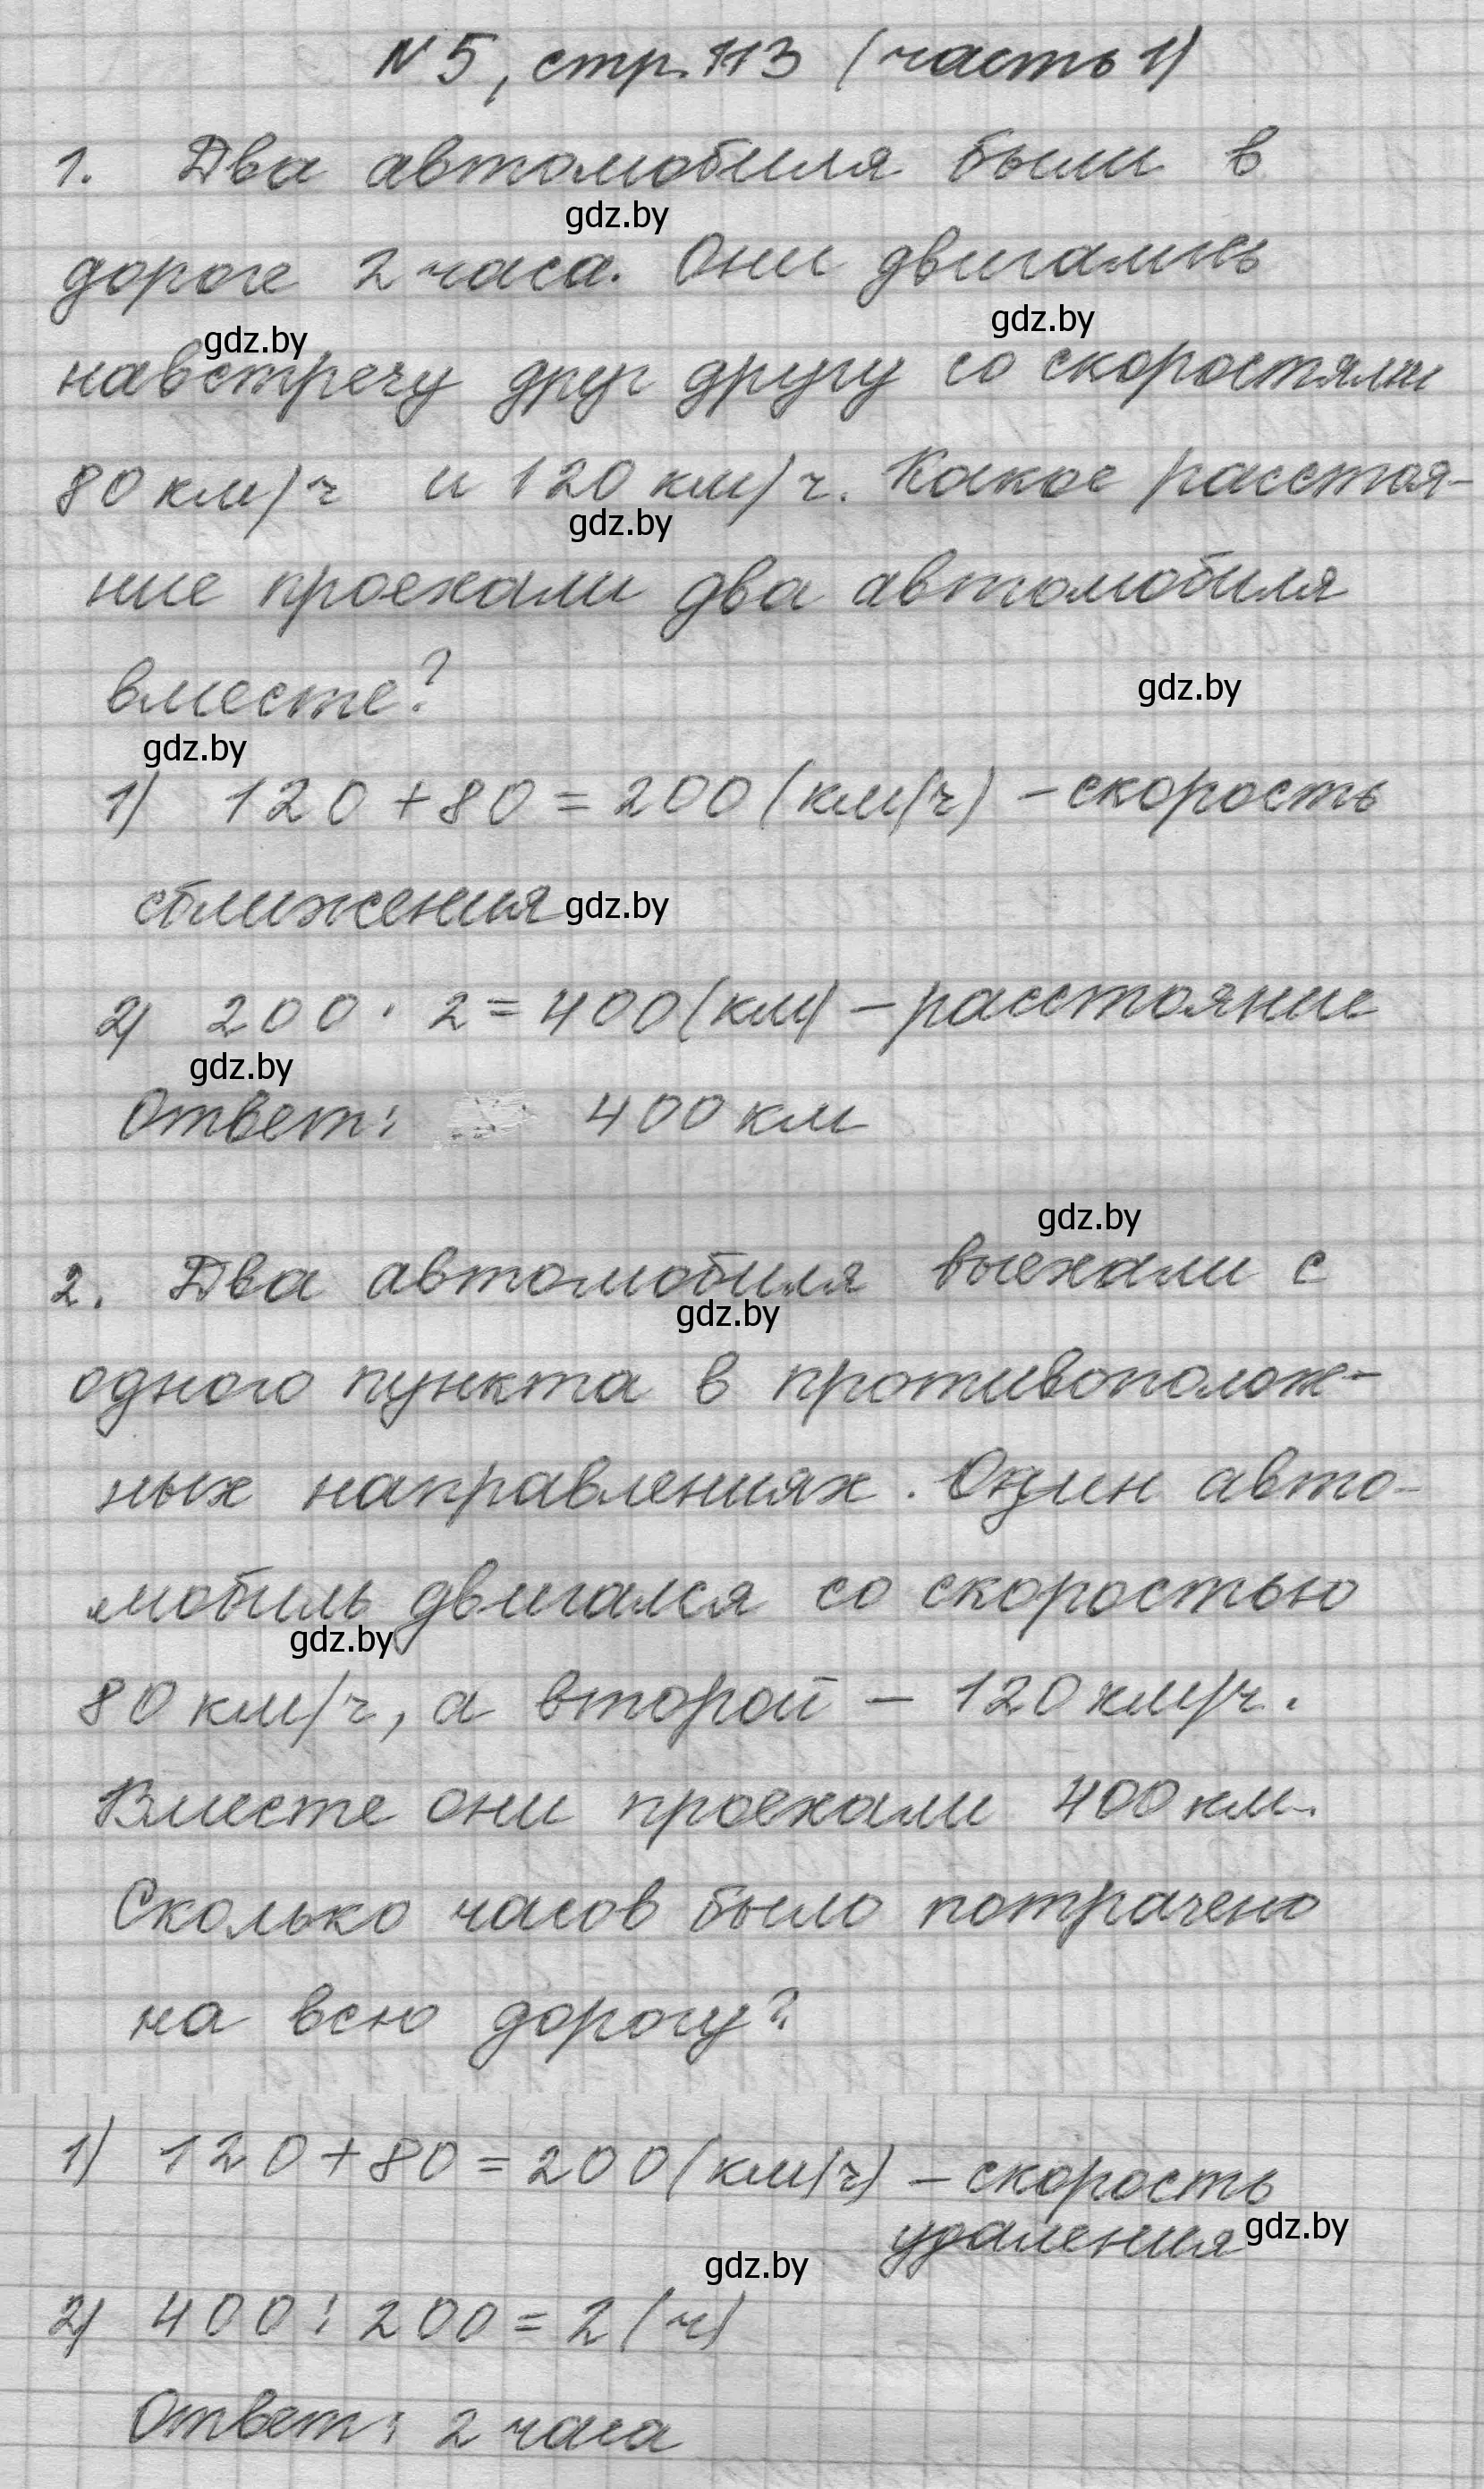 N 5, стр. 113 (часть 1)
1. Два автомобиля были в
gdz.by
дороге 2 часа. Они двигались
gdz.by
gdz.by
навстречу друг другу со скоростями
80 км/ч и 120 км/ч. Какое расстоя-
gdz.by
ние проехали два автомобиля
вместе?
gdz.by
gdz.by
1) 120 + 80 = 200 (км/ч) - скорость
сближения gdz.by
2) 200 · 2 = 400 (км) - расстояние
gdz.by
Ответ: 400 км
gdz.by
2. Два автомобиля выехали с
gdz.by
одного пункта в противополож-
ных направлениях. Один авто-
мобиль двигался со скоростью
gdz.by
80 км/ч, а второй - 120 км/ч.
Вместе они проехали 400 км.
Сколько часов было потрачено
на всю дорогу?
1) 120 + 80 = 200 (км/ч) - скорость
удаления gdz.by
gdz.by
2) 400 : 200 = 2 (ч)
Ответ: 2 часа